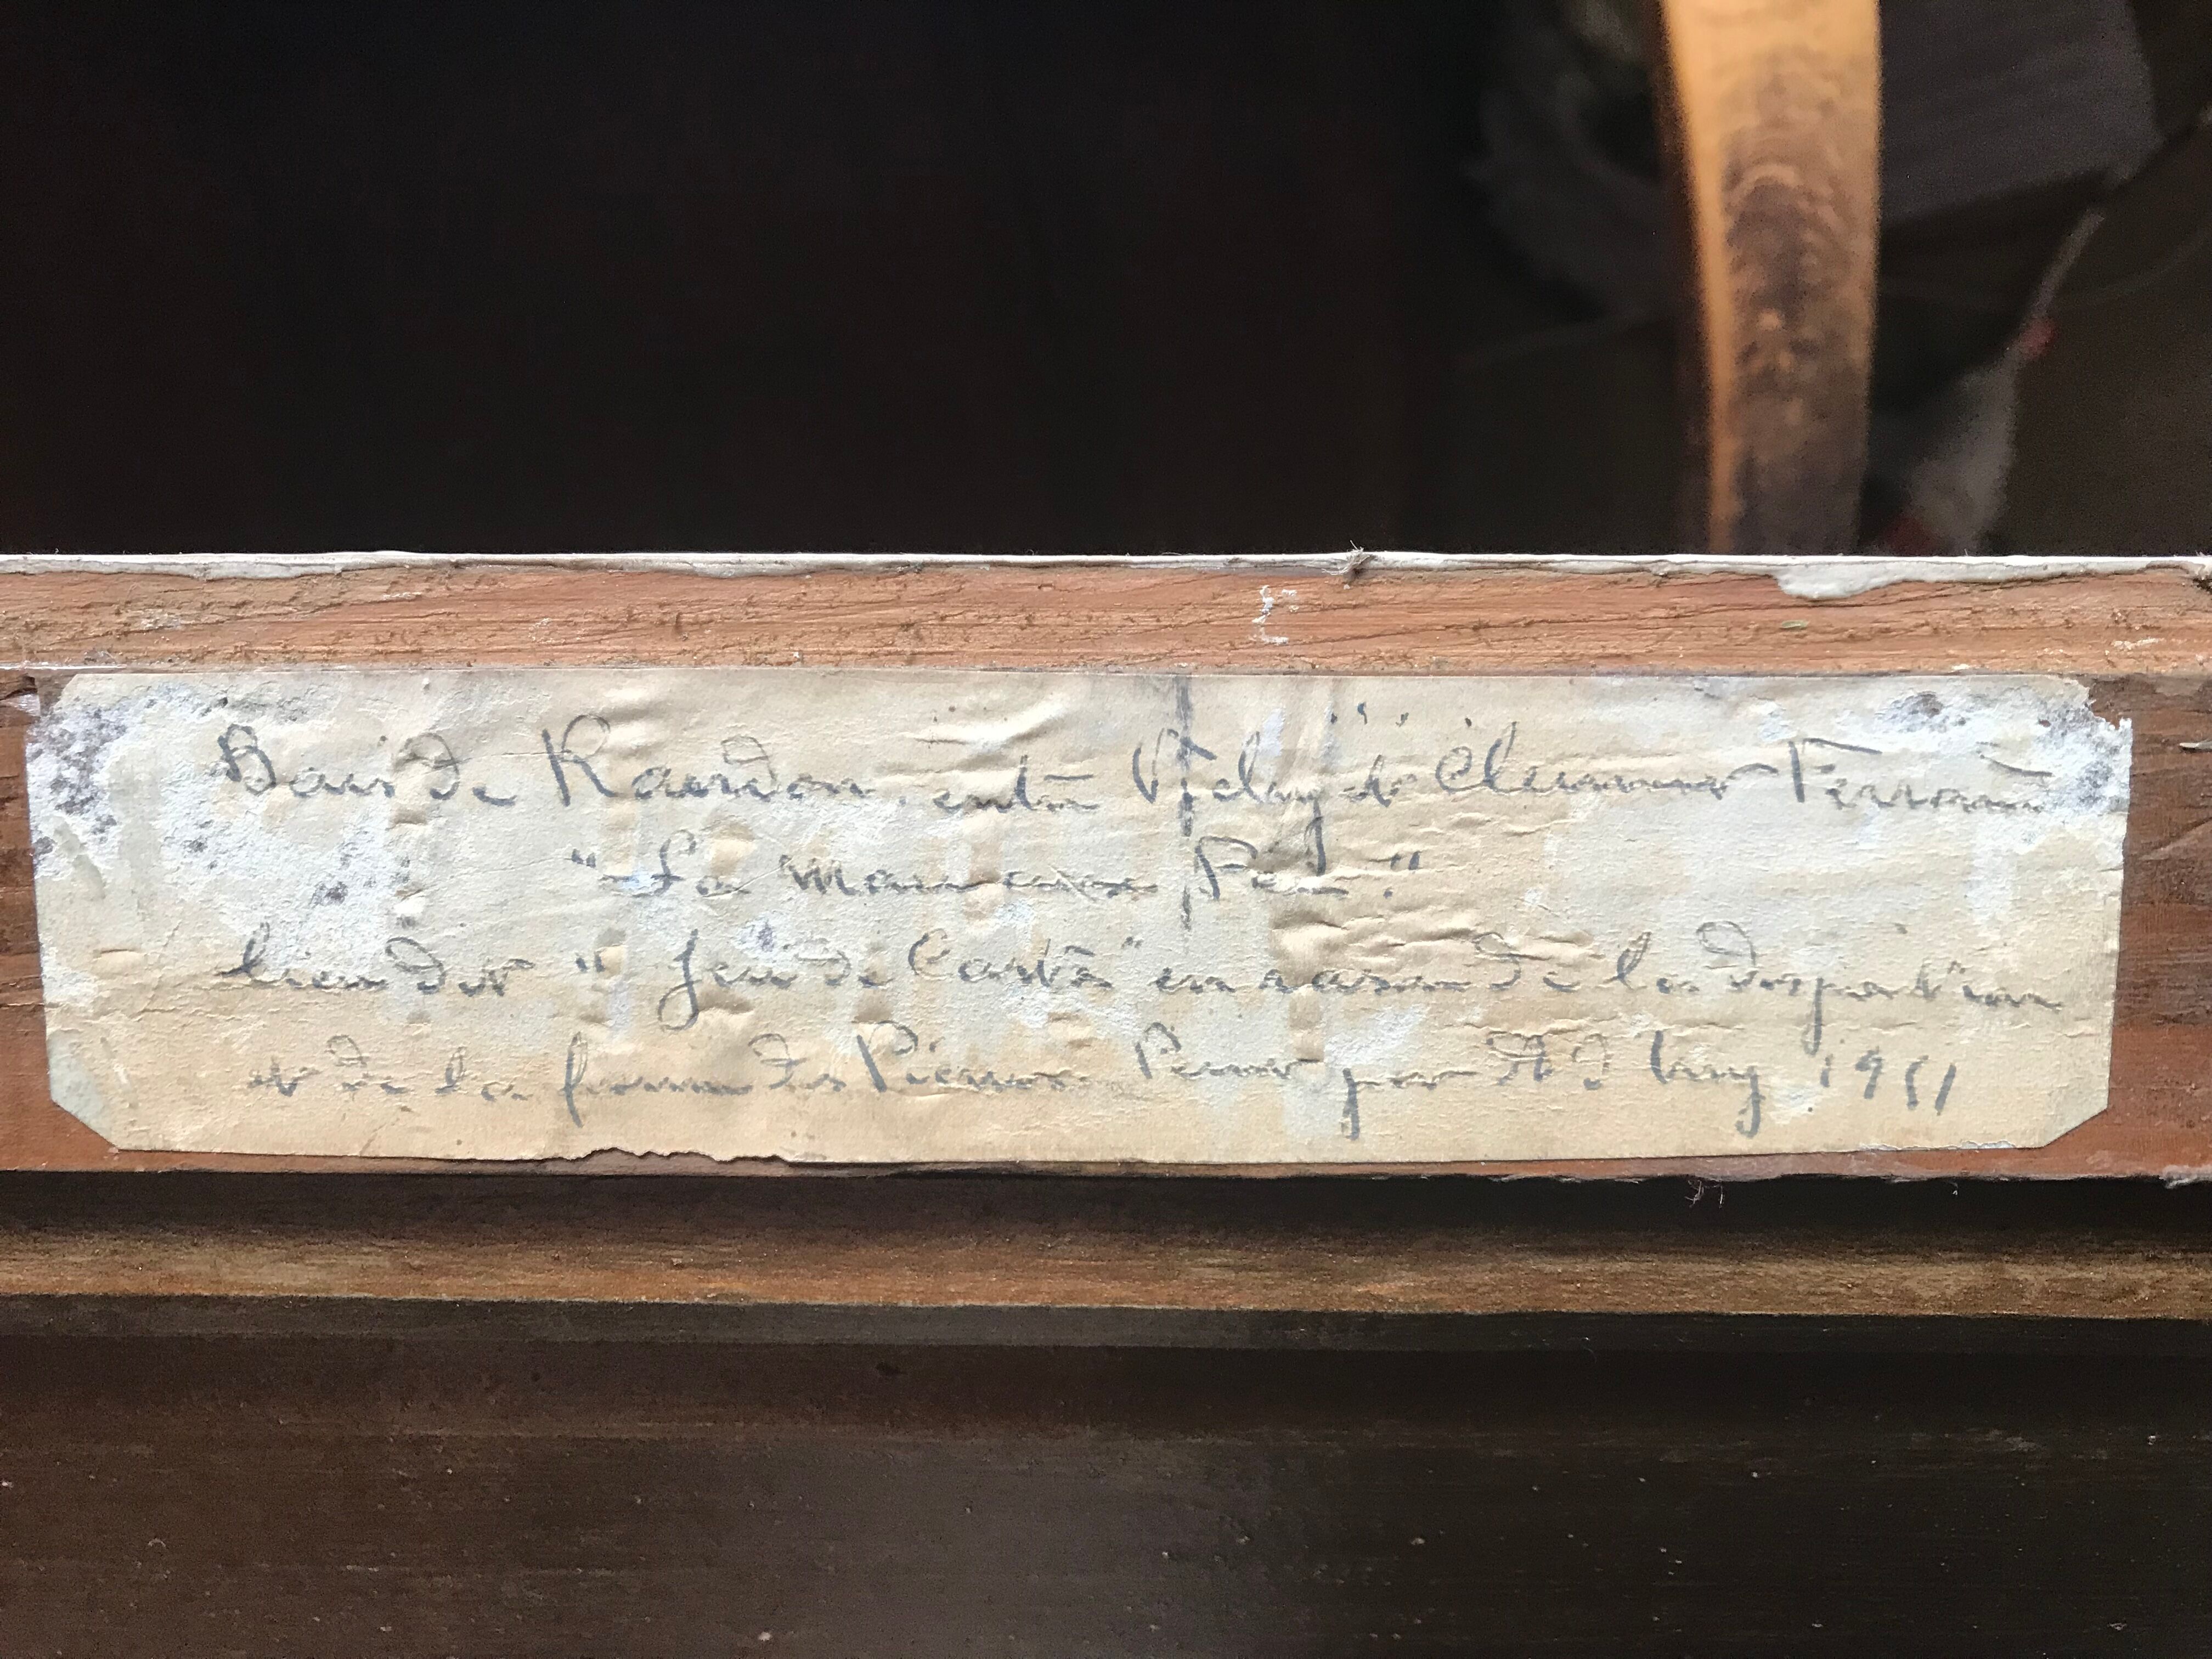 Bois de Randon, entre Velay et Clermont Ferrand
"Le Mauvais Pas."
lieu dit "Jeu de Cartes" en raison de la disposition
et de la forme des Pierres. Peint par 1951